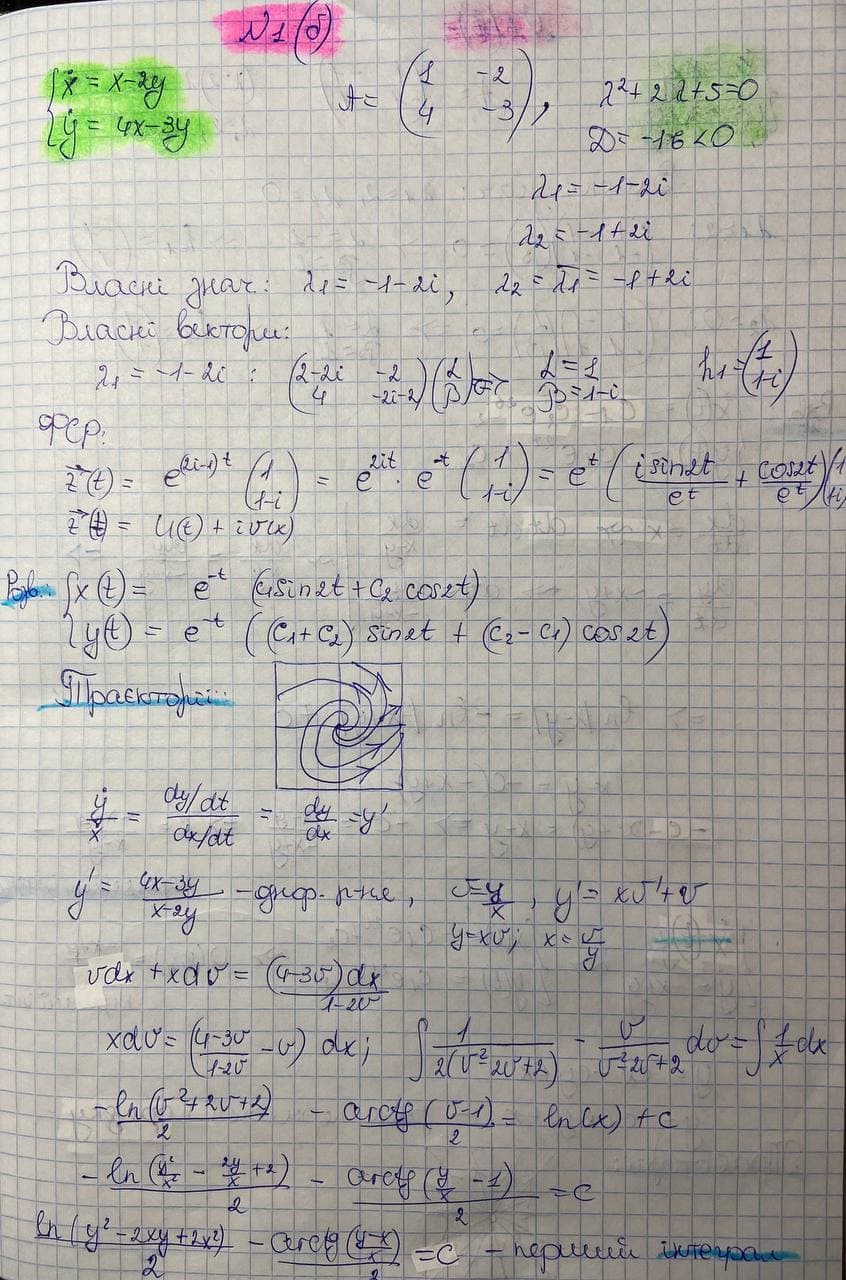 №1(б)
{ẋ = x-2y
{ẏ = 4x-3y
A = (1 -2; 4 -3), λ²+2λ+5=0
D = -16<0
λ1 = -1-2i
λ2 = -1+2i
Власні знач: λ1 = -1-2i, λ2 = λ̄1 = -1+2i
Власні вектори:
λ1 = -1-2i : (2-2i -2; 4 -2i-2)(α; β) => α=1 β=1-i h1 = (1; 1-i)
ФСР:
z⃗(t) = e^{(2i-1)t} (1; 1-i) = e^{2it} · e^{-t} (1; 1-i) = e^t (i sin2t / e^t + cos2t / e^t)(1; 1-i)
z⃗(t) = U(t) + iv(x)
Розв.: {x(t) = e^{-t} (c1 sin2t + c2 cos2t)
{y(t) = e^{-t} ((c1+c2) sin2t + (c2-c1) cos2t)
Траєкторії:
ẏ/ẋ = (dy/dt)/(dx/dt) = dy/dx = y'
y' = (4x-3y)/(x-2y) - диф. р-не, v=y/x, y' = xv'+v
y=xv; x = v/y
vdx + xdv = (4-3v)dx/(1-2v)
xdv = ((4-3v)/(1-2v) - v) dx; ∫ 1/(2(v²-2v+2)) - v/(v²-2v+2) dv = ∫ 1/x dx
- ln(v²+2v+2)/2 - arctg(v-1)/2 = ln(x) + c
- ln(y²/x² - 2y/x + 2)/2 - arctg(y/x - 1)/2 = c
ln(y²-2xy+2x²)/2 - arctg((y-x)/x)/2 = c - перший інтеграл